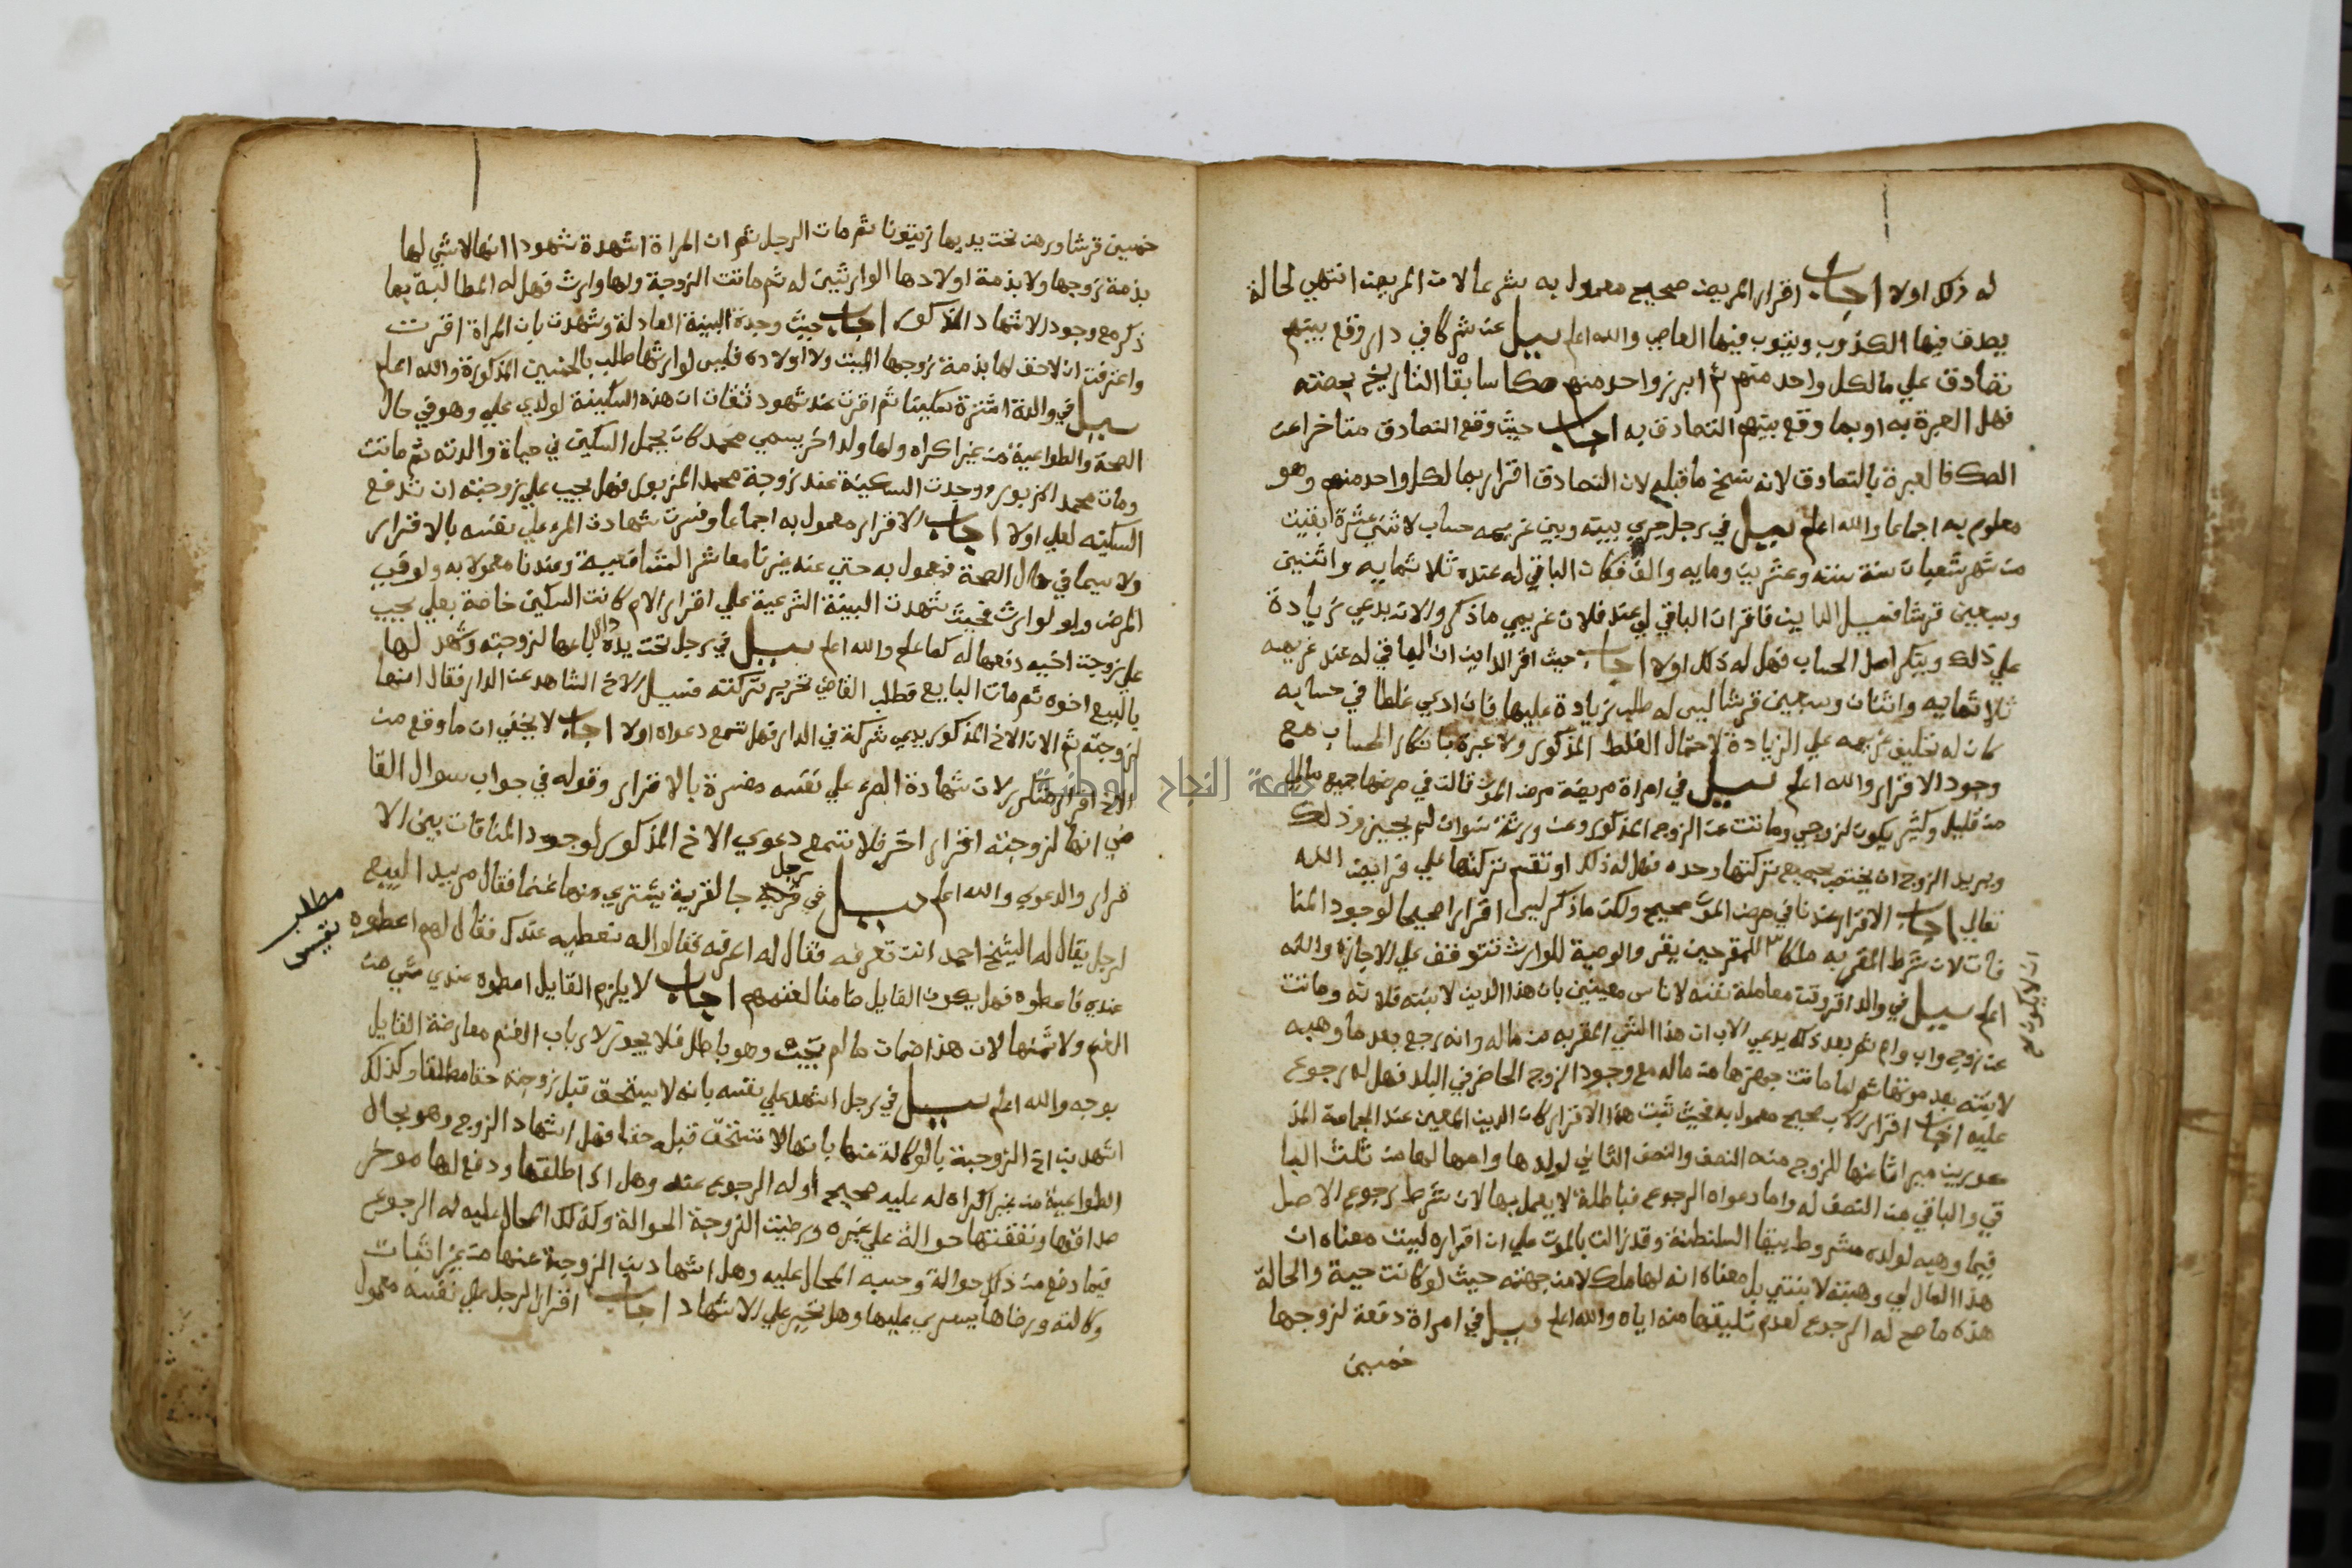 له ذلك اولا اجاب اقرار المريض صحيح معمول به شرعا لان المريض انتهي لحالة
يصدق فيها الكذوب ويتوب فيها العاصي والله اعلم سيل عن شركا في دار وقع بينهم
تصادق علي مالكل واحد منهم ثم ابرز واحد منهم صكا سابقا التاريخ بحصته
فهل العبرة به او بما وقع بينهم التصادق به اجاب حيث وقع التصادق متاخرا عن
الصك فالعبرة بالتصادق لانه نسخ ما قبله لان التصادق اقرار بما لكل واحد منهم وهو
معلوم به اجماعا والله اعلم سيل في رجل جري بينه وبين غريمه حساب لاثني عشرة بقيت
من شهر شعبان سنة ستة وعشرين ومايه والف فكان الباقي له عنده ثلاثمايه واثنين
وسبعين قرشا فسيل الداين فاقر ان الباقي لي عند فلان غريمي ما ذكر والان يدعي زيادة
علي ذلك وينكر اصل الحساب فهل له ذلك اولا اجاب حيث اقر الداين ان الباقي له عند غريمه
ثلاثمايه واثنان وسبعين قرشا ليس له طلب زيادة عليها فان ادعي غلطا في حسابه
كان له تحليف غريمه علي الزيادة لاحتمال الغلط المذكور ولا عبرة بانكار الحساب مع
وجود الاقرار والله اعلم سيل في امراة مريضة مرض الموت قالت في مرضها جميع مالي
من قليل وكثير يكون لزوجي وماتت عن الزوج المذكور وعن ورثة سوان لم يجيزو ذلك
ويريد الزوج ان يختص بجميع تركتها وحده فهل له ذلك او تقسم تركتها علي فرايض الله
تعالي اجاب الاقرار عندنا في مرض الموت صحيح ولكن ما ذكر ليس اقرارا صحيحا لوجود المنا
فات لان شرط المقر به ملكا للمقر حين يقر والوصية للوارث تتوقف علي الاجازه والله
ان لا يكون
اعلم سيل في والد اقر وقت معاملة نفسه لاناس معينين بان هذا الدين لابنته فلانه وماتت
عن زوج واب وام ثم بعد ذلك يدعي الاب ان هذا الشي المقر به من ماله وانه رجع بعد ما وهبه
لابنته بعد موتها ثم لما ماتت جهزها من ماله مع وجود الزوج الحاضر في البلد فهل له رجوع
عليه اجاب اقرار الاب صحيح معمول به فحيث ثبت هذا الاقرار كان الدين المعين عند الجماعة المذ
كورين ميراثا عنها للزوج منه النصف والنصف الثاني لولدها وامها لها من ثلث البا
قي والباقي من النصف له واما دعواه الرجوع فباطلة لا يعمل بها لان شرط رجوع الاصل
فيما وهبه لولده مشروط ببقا السلطنة وقد زالت بالموت علي ان اقراره ليس معناه ان
هذا المال لي وهبته لابنتي بل معناه انه لها ملك لا من جهته حيث لو كانت حية والحالة
هذه ما صح له الرجوع لعدم تلبيقها منه اياه والله اعلم سيل في امراة دفعة لزوجها
خمسين
خمسين قرشا ورهن تحت يديها زيتونا ثم مات الرجل ثم ان المراة اشهدة شهودا انها لا شي لها
بذمة زوجها ولا بذمة اولادها الوارثين له ثم ماتت الزوجة ولها وارث فهل له المطالبة بما
ذكر مع وجود الاشهاد المذكور اجاب حيث وجدة البينة العادلة وشهدت بان المراة اقرت
واعترفت ان لا حق لها بذمة زوجها الميت ولا اولاده فليس لوارثها طلب بالخمسين المذكورة والله اعلم
سيل في والدة اشترة سكينا ثم اقرت عند شهود ثقات ان هذه السكينة لولدي علي وهو في حال
الصحة والطواعية من غير اكراه ولها ولد اخر يسمي محمد كان يحمل السكين في حياة والدته ثم ماتت
ومات محمد المزبور ووجدت السكينة عند زوجة محمد المزبور فهل يجب علي زوجته ان تدفع
السكينه لعلي اولا اجاب الاقرار معمول به اجماعا وفسرت شهادت المرء علي نفسه بالاقرار
ولا سيما في حال الصحة فمعمول به حتي عند غيرنا معاشر الشافعية وعندنا معمولا به ولو في
المرض ولو لوارث فحيث شهدت البينة الشرعية علي اقرار الام كانت السكين خاصة بعلي يجب
علي زوجت اخيه دفعها له كما علم والله اعلم سيل في رجل تحت يده دار باعها لزوجته وشهد لها
بالبيع اخوه ثم مات البايع فطلب القاضي تحرير تركته فسيل الاخ الشاهد عن الدار فقال انها
لزوجته ثم الان الاخ المذكور يدعي شركة في الدار فهل تسمع دعواه اولا اجاب لا يخفي ان ما وقع من
الاخ اقرار لان شهادة المرء علي نفسه مفسرة بالاقرار وقوله في جواب سوال القا
ضي انها لزوجته اقرار اخر فلا تسمع دعوي الاخ المذكور لوجود المنافات بين الا
قرار والدعوي والله اعلم سيل في رجل جا لقرية يشتري منها غنما فقال مريد البيع
مطلب نفيس
لرجل يقال له الشيخ احمد انت تعرفه فقال له اعرفه فقالوا له نعطيه عندك فقال لهم اعطوه
عندي فاعطوه فهل يكون القايل ضامنا لغنمهم اجاب لا يلزم القايل اعطوه عندي شي من
الغنم ولا ثمنها لان هذا ضمان ما لم يجب وهو باطل فلا يجوز لارباب الغنم معارضة القايل
بوجه والله اعلم سيل في رجل اشهد علي نفسه بانه لا يستحق قبل زوجته حقا مطلقا وكذلك
اشهد ابن اخ الزوجة بالوكالة عنها بانها لا تستحق قبله حقا فهل اشهاد الزوج وهو بحال
الطواعية من غير اكراه له عليه صحيح أوله الرجوع عنه وهل اذا طلقها ودفع لها موخر
صداقها ونفقتها حوالة علي غيره ورضيت الزوجة الحوالة وكذلك المحال عليه له الرجوع
فيما دفع من ذلك حوالة وحسبه المحال عليه وهل اشهاد بن الزوجة عنها من غير اثبات
وكالته ورضاها يسري عليها وهل تجبر علي الاشهاد اجاب اقرار الرجل علي نفسه معمول
جامعة النجاح الوطنية